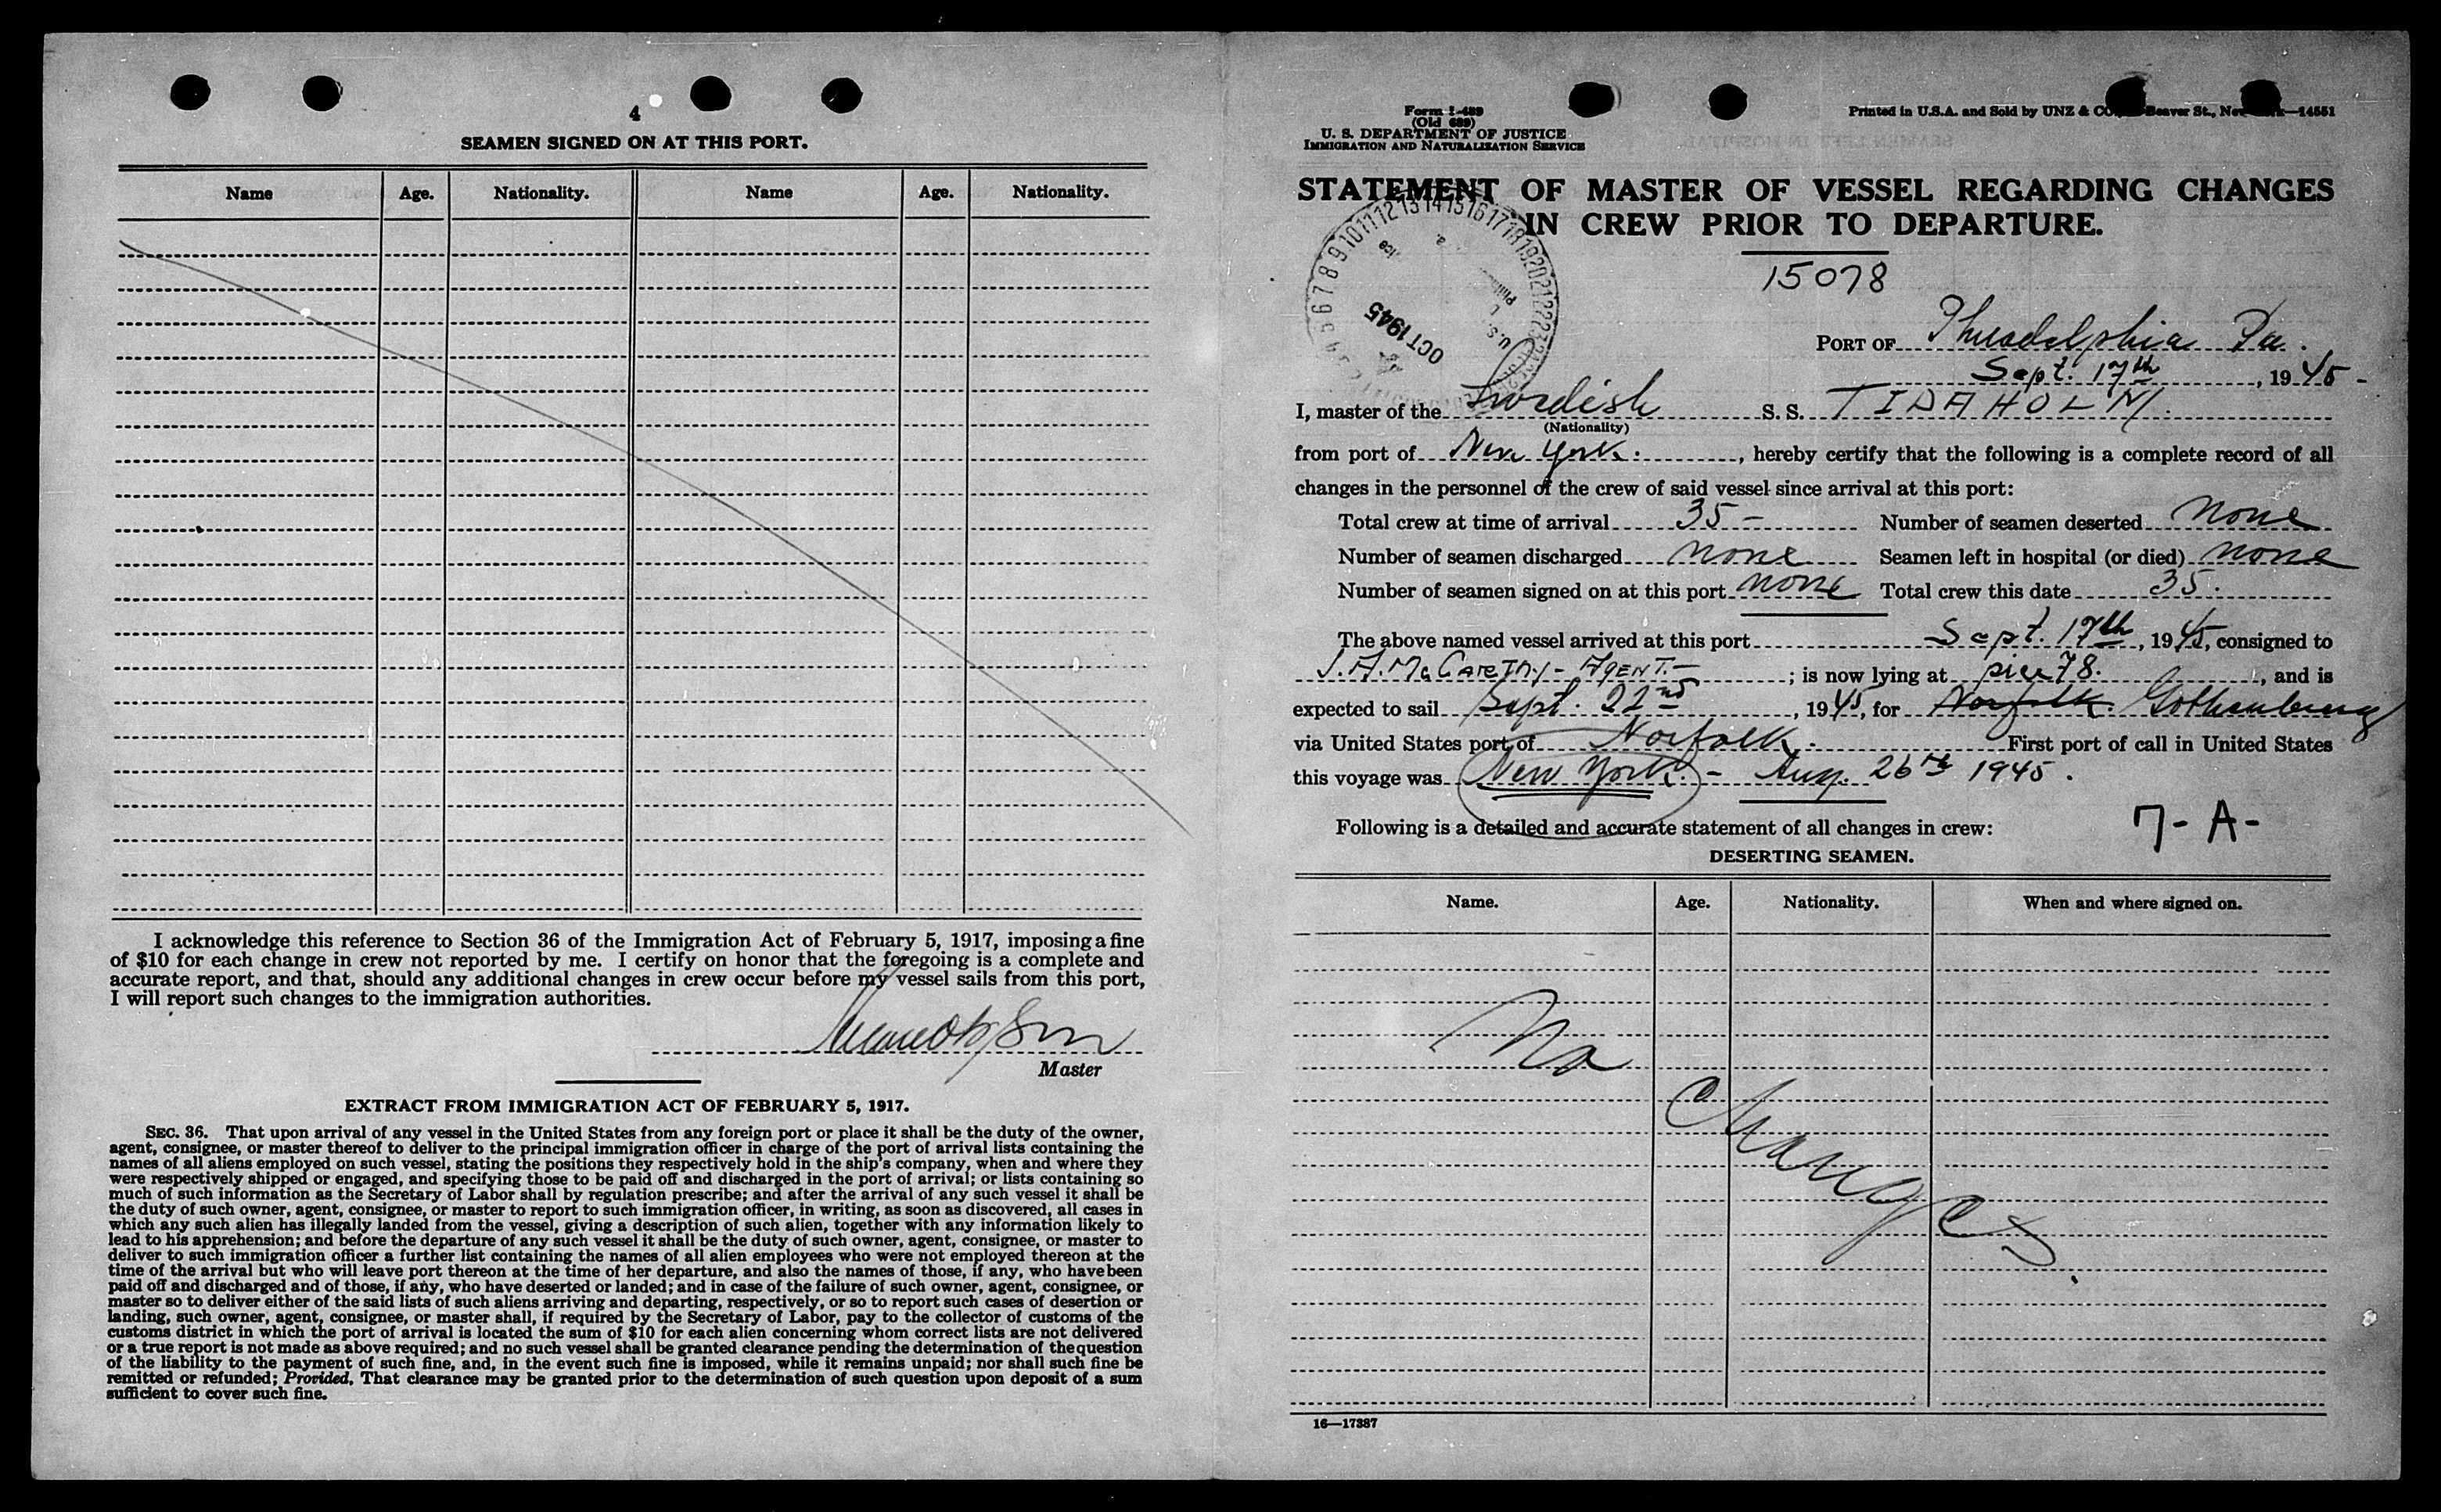 4
SEAMEN SIGNED ON AT THIS PORT.
Name Age. Nationality. Name Age. Nationality.
I acknowledge this reference to Section 36 of the Immigration Act of February 5, 1917, imposing a fine
of $10 for each change in crew not reported by me. I certify on honor that the foregoing is a complete and
accurate report, and that, should any additional changes in crew occur before my vessel sails from this port,
I will report such changes to the immigration authorities.
Master
EXTRACT FROM IMMIGRATION ACT OF FEBRUARY 5, 1917.
SEC. 36. That upon arrival of any vessel in the United States from any foreign port or place it shall be the duty of the owner,
agent, consignee, or master thereof to deliver to the principal immigration officer in charge of the port of arrival lists containing the
names of all aliens employed on such vessel, stating the positions they respectively hold in the ship's company, when and where they
were respectively shipped or engaged, and specifying those to be paid off and discharged in the port of arrival; or lists containing so
much of such information as the Secretary of Labor shall by regulation prescribe; and after the arrival of any such vessel it shall be
the duty of such owner, agent, consignee, or master to report to such immigration officer, in writing, as soon as discovered, all cases in
which any such alien has illegally landed from the vessel, giving a description of such alien, together with any information likely to
lead to his apprehension; and before the departure of any such vessel it shall be the duty of such owner, agent, consignee, or master to
deliver to such immigration officer a further list containing the names of all alien employees who were not employed thereon at the
time of the arrival but who will leave port thereon at the time of her departure, and also the names of those, if any, who have been
paid off and discharged and of those, if any, who have deserted or landed; and in case of the failure of such owner, agent, consignee, or
master so to deliver either of the said lists of such aliens arriving and departing, respectively, or so to report such cases of desertion or
landing, such owner, agent, consignee, or master shall, if required by the Secretary of Labor, pay to the collector of customs of the
customs district in which the port of arrival is located the sum of $10 for each alien concerning whom correct lists are not delivered
or a true report is not made as above required; and no such vessel shall be granted clearance pending the determination of the question
of the liability to the payment of such fine, and, in the event such fine is imposed, while it remains unpaid; nor shall such fine be
remitted or refunded; Provided, That clearance may be granted prior to the determination of such question upon deposit of a sum
sufficient to cover such fine.
Form I-489
(Old 689)
U. S. DEPARTMENT OF JUSTICE
IMMIGRATION AND NATURALIZATION SERVICE
Printed in U.S.A. and Sold by UNZ & CO. Beaver St., New —14551
STATEMENT OF MASTER OF VESSEL REGARDING CHANGES
IN CREW PRIOR TO DEPARTURE.
15078
OCT 1945
PORT OF Philadelphia Pa.
Sept. 17th, 1945-
I, master of the Swedish S. S. TIDAHOLM.
(Nationality)
from port of New York., hereby certify that the following is a complete record of all
changes in the personnel of the crew of said vessel since arrival at this port:
Total crew at time of arrival 35- Number of seamen deserted None
Number of seamen discharged none Seamen left in hospital (or died) none
Number of seamen signed on at this port none Total crew this date 35.
The above named vessel arrived at this port Sept. 17th, 1945, consigned to
J.A. McCARTHY- AGENT.-; is now lying at pier 78., and is
expected to sail Sept. 22nd, 1945, for Norfolk. Gothenburg
via United States port of Norfolk. First port of call in United States
this voyage was New York.- Aug. 26th 1945.
Following is a detailed and accurate statement of all changes in crew: 7-A-
DESERTING SEAMEN.
Name. Age. Nationality. When and where signed on.
No
Changes.
16—17387